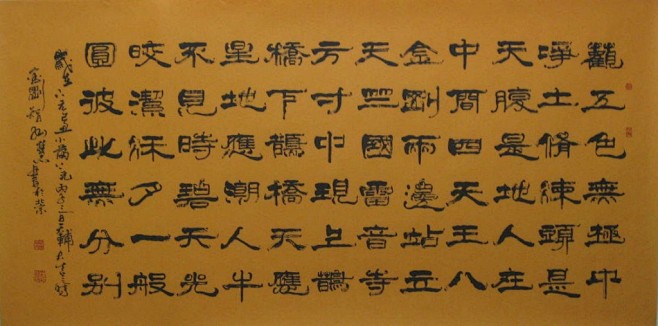 觀五色無極中
淨土修頭是
天腹是地人在
中間四天王八
金剛兩邊站五
天竺國雷音寺
方寸中現上鵲
橋下鵲橋天應
星地應潮人牛
不見時碧天光
皎潔一般
圓彼此無分別
歲在